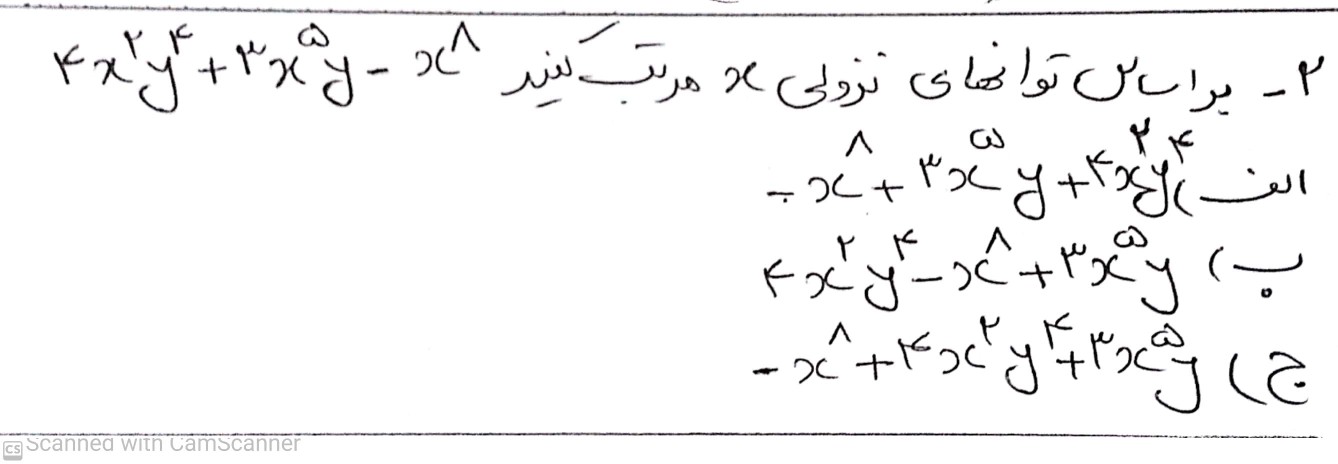 ۲- براساس توانهای نزولی x مرتب کنید ۴x^۲y^۴+۳x^۵y-x^۸
الف) -x^۸+۳x^۵y+۴x^۲y^۴
ب) ۴x^۲y^۴-x^۸+۳x^۵y
ج) -x^۸+۴x^۲y^۴+۳x^۵y
CS Scanned with CamScanner